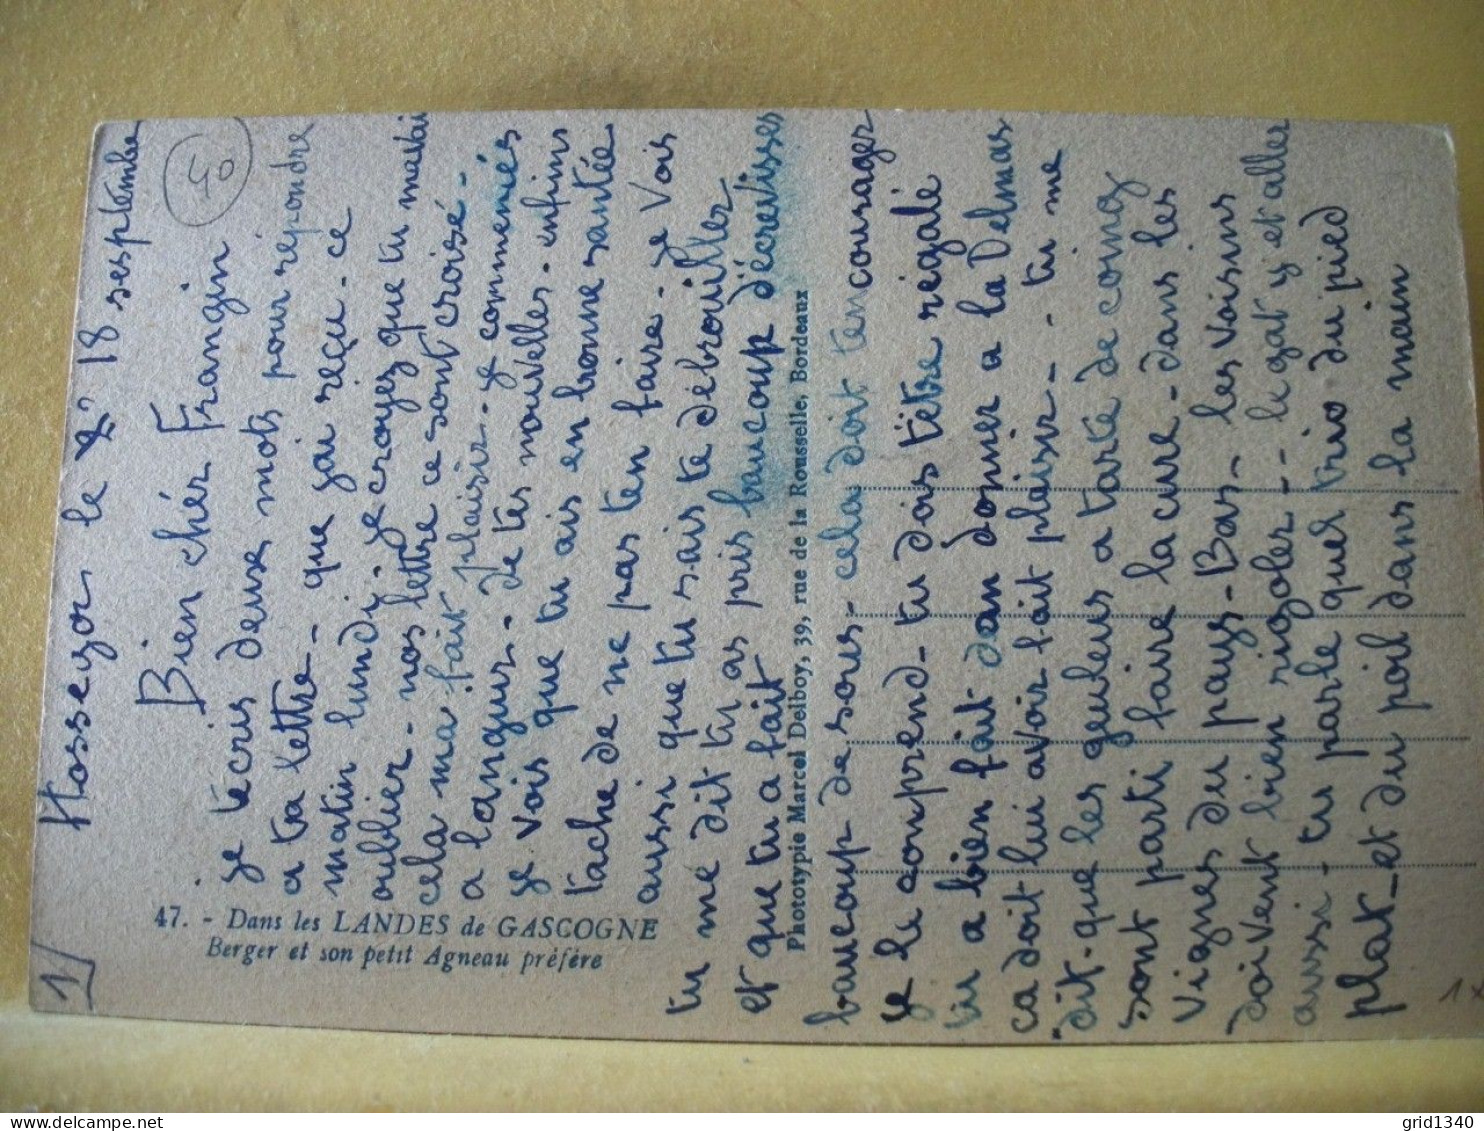 1/
Hossegor le 18 sesptembre
40
Bien chér Frangin
je técris deux mots pour répondre
a ta lettre - que jai reçu - ce
matin lundi - je croyez que tu mavai
oublier - nos lettre ce sont croisé -
cela ma fait plaisir - je commencés
a languir - de tes nouvelles - enfins
je vois que tu ais en bonne santée
tache de ne pas ten faire - je vois
aussi que tu sais te débrouiller
tu mé dit tu as pris baucoup décrevisses
et que tu a fait
baucoup de sous - cela doit ten courager
je le comprend - tu dois têtre régalé
tu a bien fait dan donner a la Delmas
ca doit lui avoir fait plaisir - tu me
dit - que les geuleus a tarté de
sont parti faire la cure - dans les
vignes du pays - Bas - les voisins
doivent bien rigoler - le gat y et alle
aussi - tu parle quel trio du pied
plat - et du poil dans la main
47. - Dans les LANDES de GASCOGNE
Berger et son petit Agneau préféré
Phototypie Marcel Delboy, 39, rue de la Rousselle, Bordeaux
grid1340